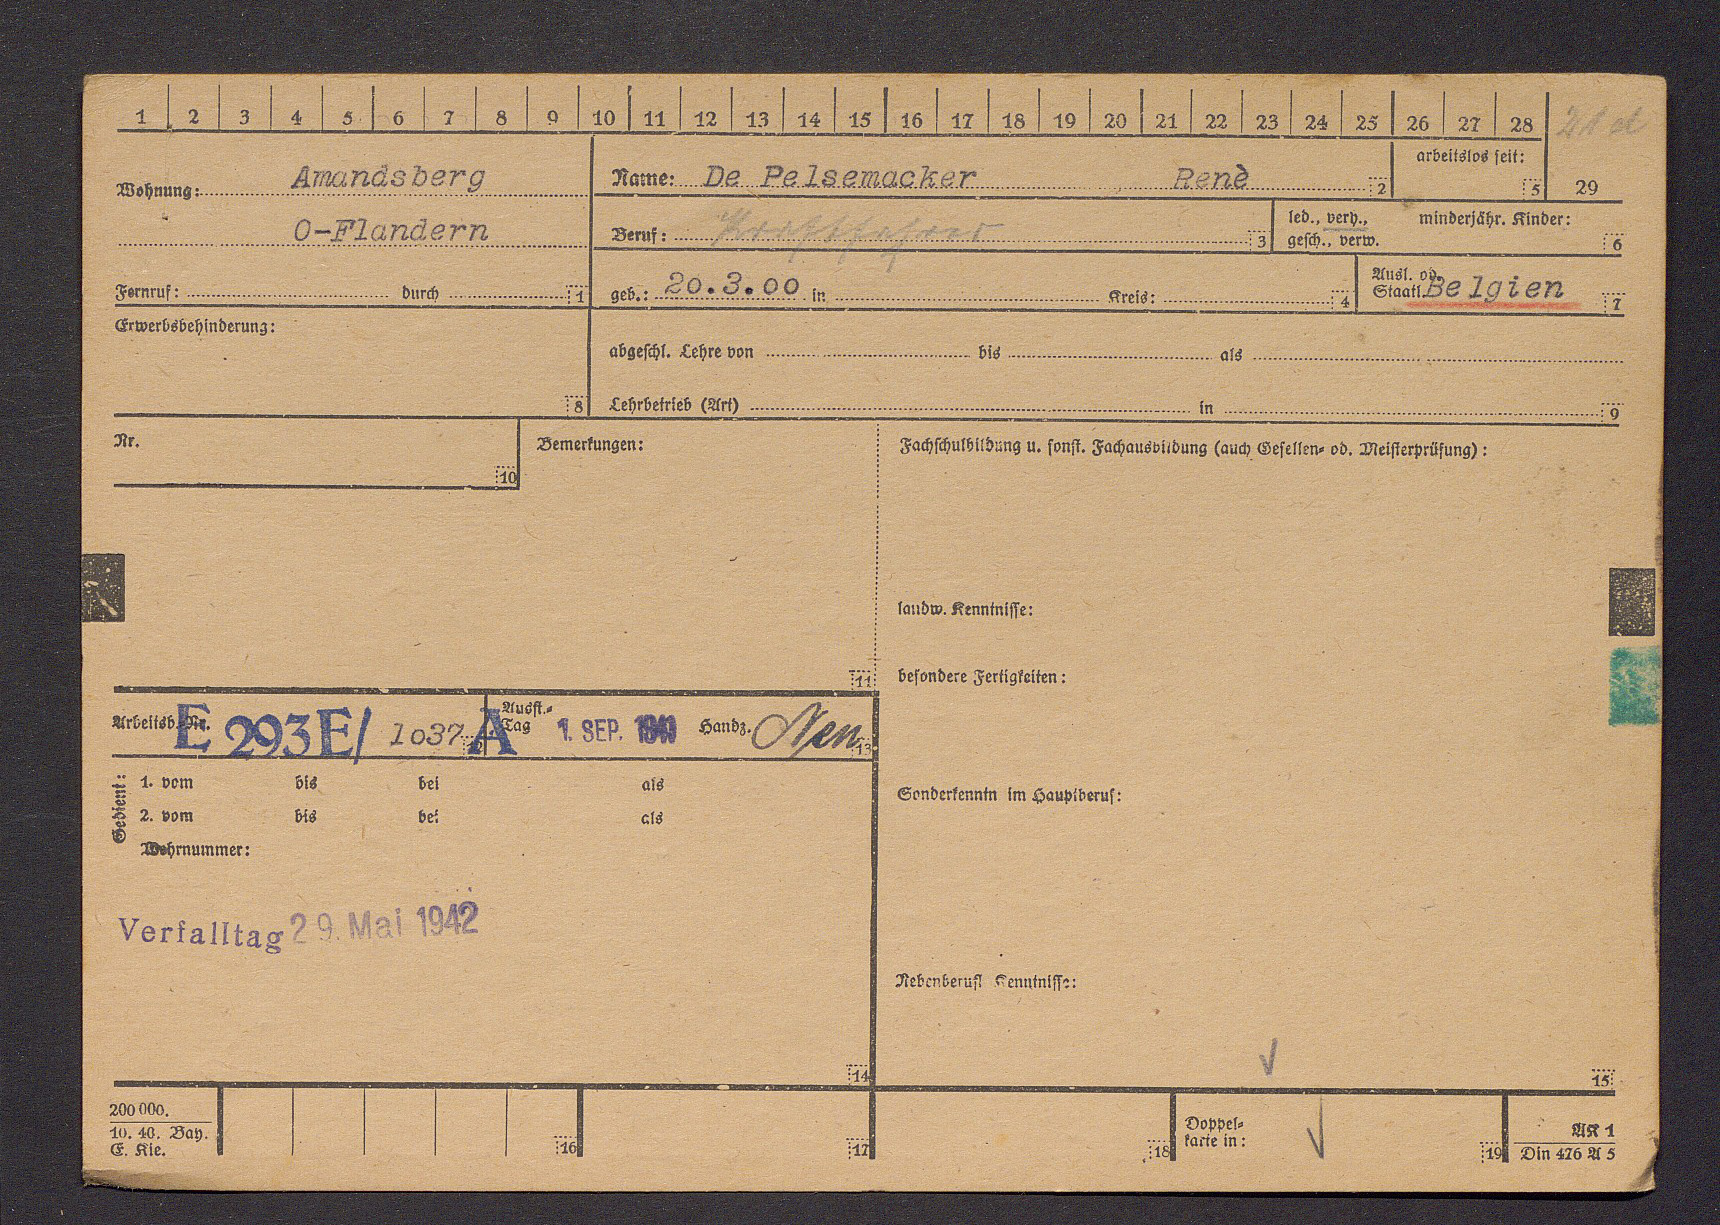 1 2 3 4 5 6 7 8 9 10 11 12 13 14 15 16 17 18 19 20 21 22 23 24 25 26 27 28
Wohnung: Amandsberg
O-Flandern
Fernruf: durch 1
Name: De Pelsemacker Renè 2
arbeitslos seit: 5
29
Beruf: Kraftfahrer 3
led., verh., gesch., verw.
minderjähr. Kinder: 6
geb.: 20.3.00 in Kreis: 4
Ausl. od. Staatl. Belgien 7
Erwerbsbehinderung:
8
abgeschl. Lehre von bis als
Lehrbetrieb (Art) in 9
Nr.
10
Bemerkungen:
11
Fachschulbildung u. sonst. Fachausbildung (auch Gesellen- od. Meisterprüfung):
landw. Kenntnisse:
besondere Fertigkeiten:
Arbeitsb.-Nr. E 293E/ 1037 A
Ausst.-Tag 1. SEP. Handz. 13
Gedient:
1. vom bis bei als
2. vom bis bei als
Wehrnummer:
Verfalltag 29. Mai 1942
14
Sonderkenntn im Hauptberuf:
Nebenberufl Kenntnisse:
15
200 000.
10. 40. Bay.
E. Kie.
16
17
18
Doppel-
karte in:
19
AK 1
Din 476 A 5